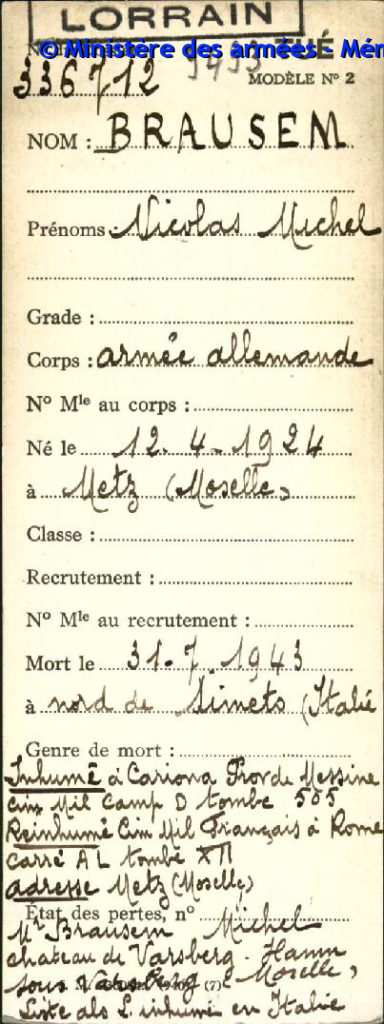 LORRAIN
© Ministère des armées - Mém
TUÉ
336712
MODÈLE N° 2
NOM : BRAUSEM
Prénoms : Nicolas Michel
Grade :
Corps : armée allemande
N° Mle au corps :
Né le 12. 4. 1924
à Metz (Moselle)
Classe :
Recrutement :
N° Mle au recrutement :
Mort le 31-7-1943
à nord de Simets (Italie
Genre de mort :
Inhumé à Cariona Prov de Messine
Cim Mil Camp D tombe 505
Reinhumé Cim Mil Français à Rome
Carré AL tombe XII
adresse Metz (Moselle)
État des pertes, n°
Mr Brausem Michel
chateau de Varsberg - Hamm
sous Varsberg (Moselle)
Liste als L. inhumé en Italie